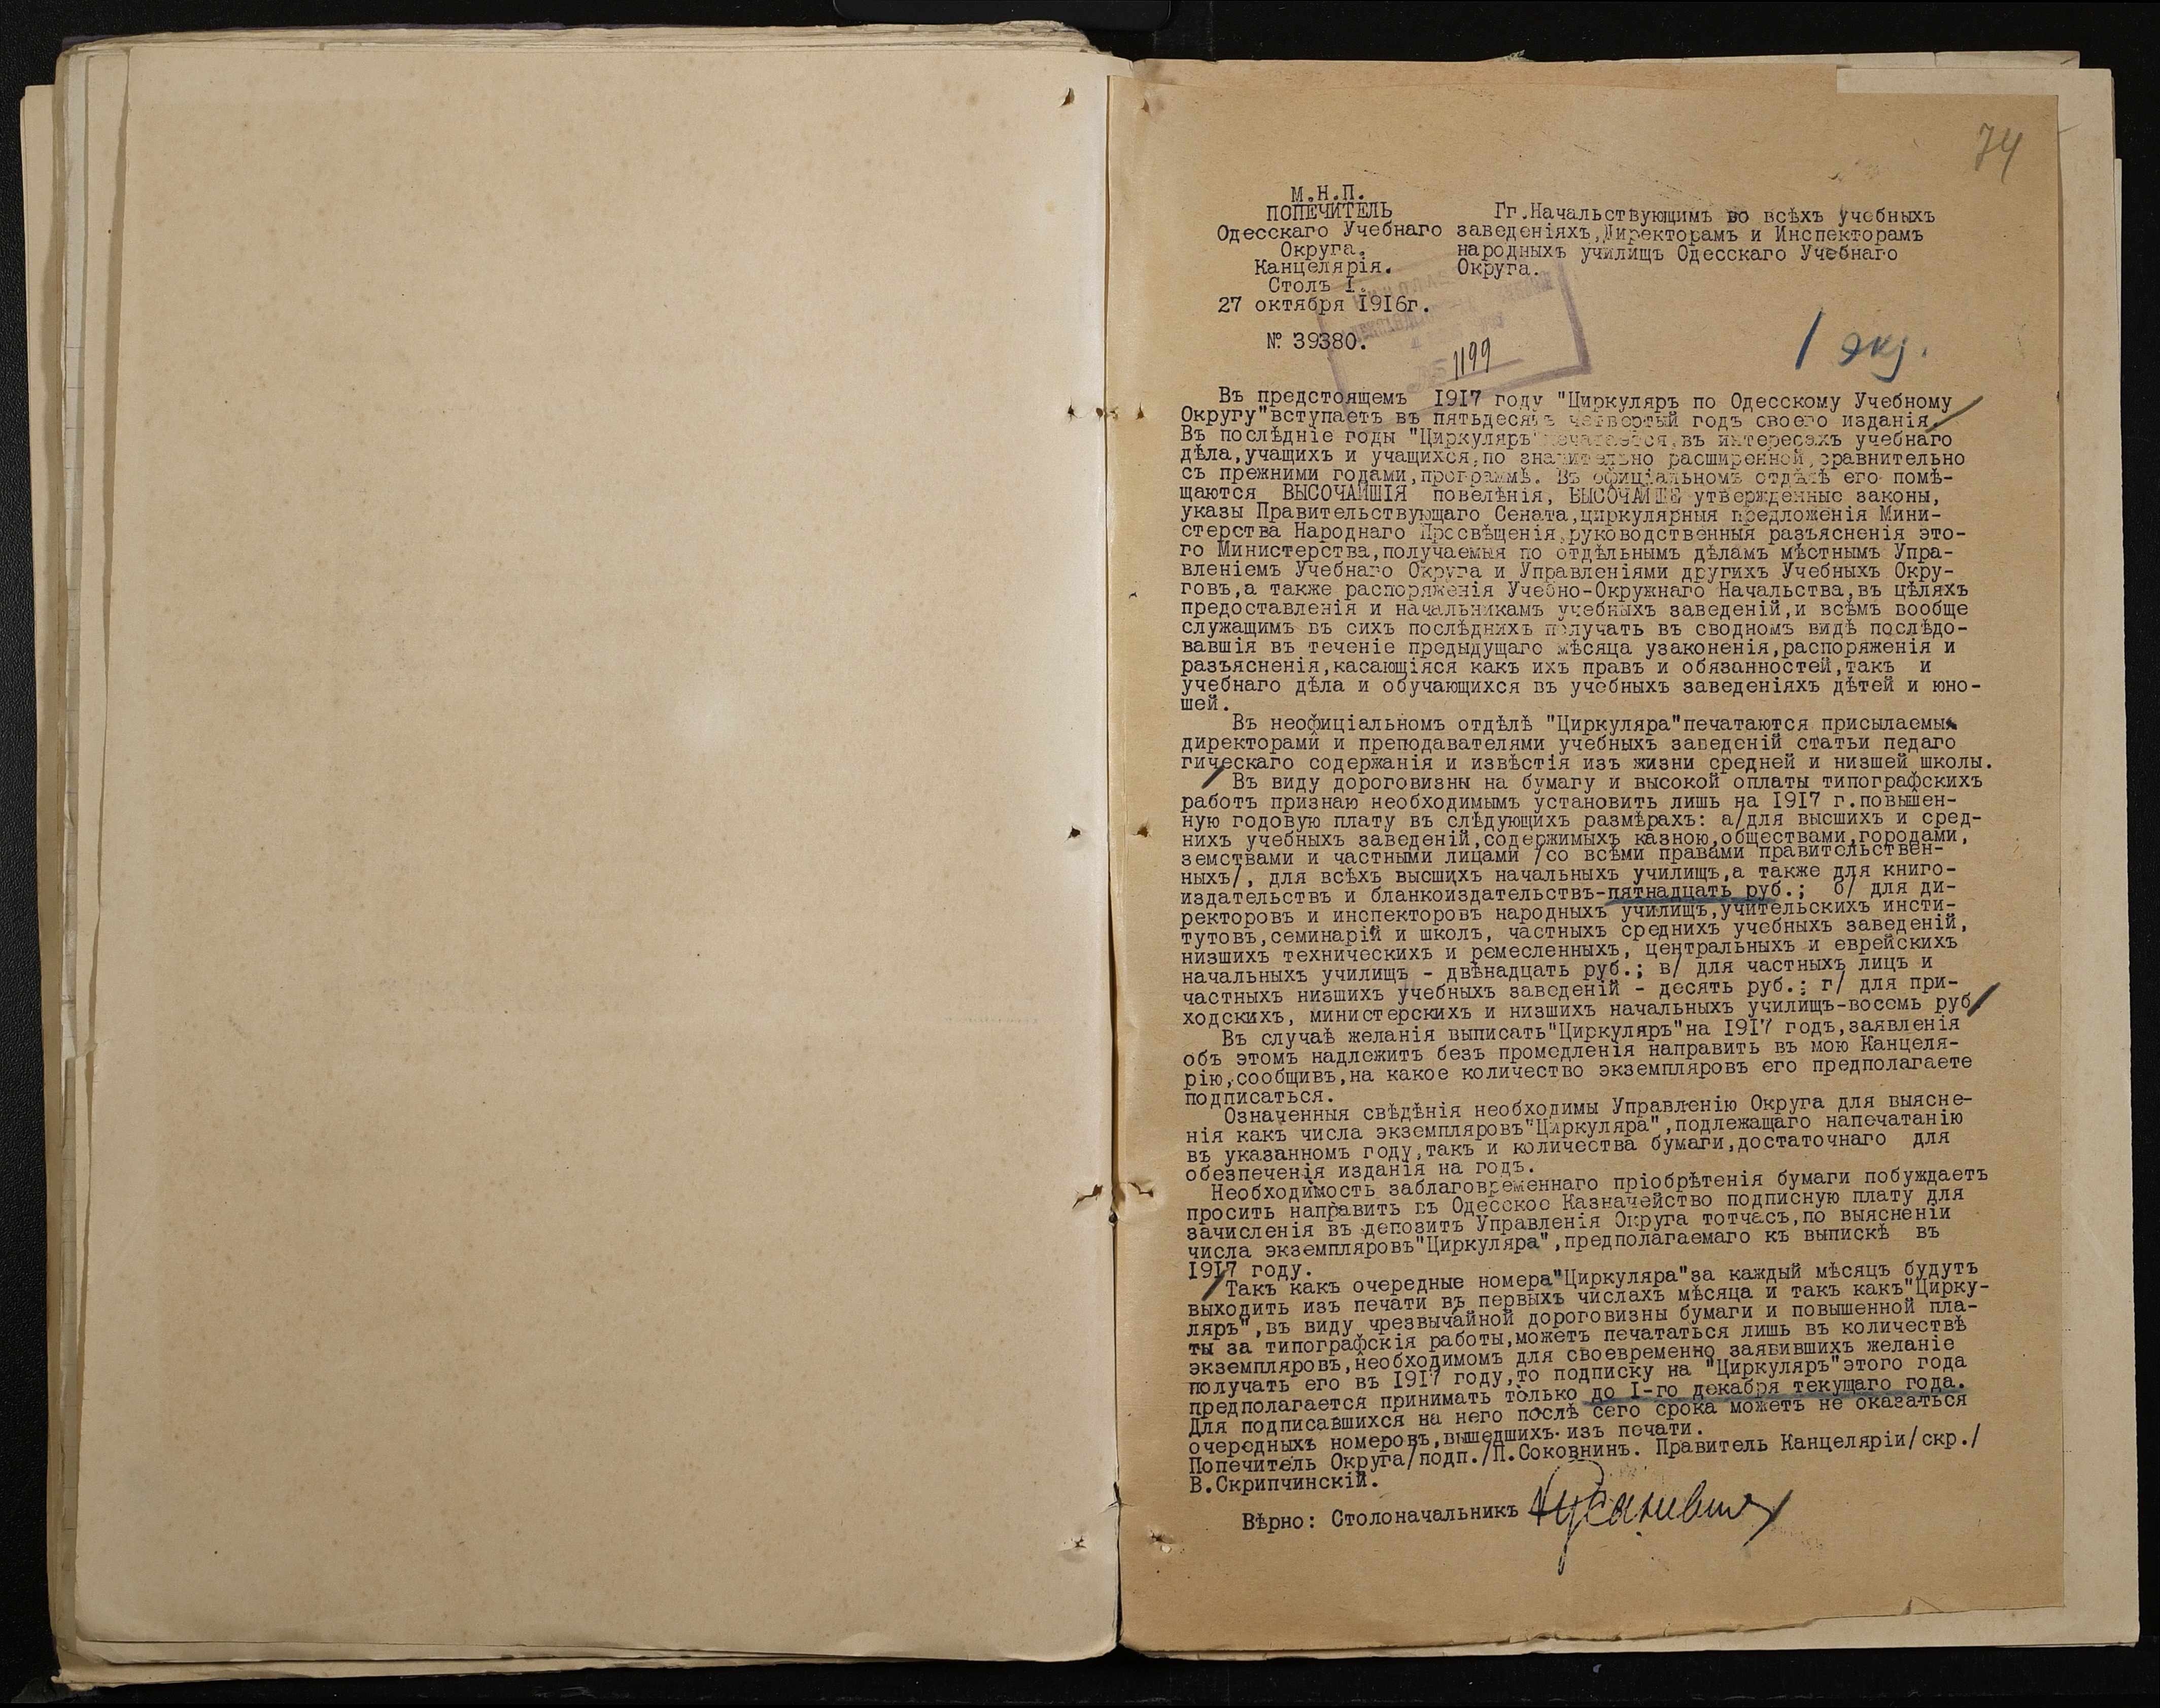 74
М.Н.П.
ПОПЕЧИТЕЛЬ
Одесскаго Учебнаго
Округа.
Канцелярія.
Столъ I.
27 октября 1916г.
№ 39380.
Гг.Начальствующимъ во всѣхъ учебныхъ
заведеніяхъ,Директорамъ и Инспекторамъ
народныхъ училищъ Одесскаго Учебнаго
Округа.
№ 1199
1 экз.
Въ предстоящемъ 1917 году "Циркуляръ по Одесскому Учебному
Округу"вступаетъ въ пятьдесятъ четвертый годъ своего изданія.
Въ послѣдніе годы "Циркуляръ"печатается,въ интересахъ учебнаго
дѣла,учащихъ и учащихся,по значительно расширенной,сравнительно
съ прежними годами,программѣ. Въ офиціальномъ отдѣлѣ его помѣ-
щаются ВЫСОЧАЙШІЯ повелѣнія, ВЫСОЧАЙШЕ утвержденные законы,
указы Правительствующаго Сената,циркулярныя предложенія Мини-
стерства Народнаго Просвѣщенія,руководственныя разъясненія это-
го Министерства,получаемыя по отдѣльнымъ дѣламъ мѣстнымъ Упра-
вленіемъ Учебнаго Округа и Управленіями другихъ Учебныхъ Окру-
говъ,а также распоряженія Учебно-Окружнаго Начальства,въ цѣляхъ
предоставленія и начальникамъ учебныхъ заведеній,и всѣмъ вообще
служащимъ въ сихъ послѣднихъ получать въ сводномъ видѣ послѣдо-
вавшія въ теченіе предыдущаго мѣсяца узаконенія,распоряженія и
разъясненія,касающіяся какъ ихъ правъ и обязанностей,такъ и
учебнаго дѣла и обучающихся въ учебныхъ заведеніяхъ дѣтей и юно-
шей.
Въ неофиціальномъ отдѣлѣ "Циркуляра"печатаются присылаемыя
директорами и преподавателями учебныхъ заведеній статьи педаго
гическаго содержанія и извѣстія изъ жизни средней и низшей школы.
Въ виду дороговизны на бумагу и высокой оплаты типографскихъ
работъ признаю необходимымъ установить лишь на 1917 г.повышен-
ную годовую плату въ слѣдующихъ размѣрахъ: а/для высшихъ и сред-
нихъ учебныхъ заведеній,содержимыхъ казною,обществами,городами,
земствами и частными лицами /со всѣми правами правительствен-
ныхъ/, для всѣхъ высшихъ начальныхъ училищъ,а также для книго-
издательствъ и бланкоиздательствъ-пятнадцать руб.; б/ для ди-
ректоровъ и инспекторовъ народныхъ училищъ,учительскихъ инсти-
тутовъ,семинарій и школъ, частныхъ среднихъ учебныхъ заведеній,
низшихъ техническихъ и ремесленныхъ, центральныхъ и еврейскихъ
начальныхъ училищъ - двѣнадцать руб.; в/ для частныхъ лицъ и
частныхъ низшихъ учебныхъ заведеній - десять руб.; г/ для при-
ходскихъ, министерскихъ и низшихъ начальныхъ училищъ-восемь руб.
Въ случаѣ желанія выписать"Циркуляръ"на 1917 годъ,заявленія
объ этомъ надлежитъ безъ промедленія направить въ мою Канцеля-
рію,сообщивъ,на какое количество экземпляровъ его предполагаете
подписаться.
Означенныя свѣдѣнія необходимы Управленію Округа для выясне-
нія какъ числа экземпляровъ"Циркуляра",подлежащаго напечатанію
въ указанномъ году,такъ и количества бумаги,достаточнаго для
обезпеченія изданія на годъ.
Необходимость заблаговременнаго пріобрѣтенія бумаги побуждаетъ
просить направить въ Одесское Казначейство подписную плату для
зачисленія въ депозитъ Управленія Округа тотчасъ,по выясненіи
числа экземпляровъ"Циркуляра",предполагаемаго къ выпискѣ въ
1917 году.
Такъ какъ очередные номера"Циркуляра"за каждый мѣсяцъ будутъ
выходить изъ печати въ первыхъ числахъ мѣсяца и такъ какъ"Цирку-
ляръ",въ виду чрезвычайной дороговизны бумаги и повышенной пла-
ты за типографскія работы,можетъ печататься лишь въ количествѣ
экземпляровъ,необходимомъ для своевременно заявившихъ желаніе
получать его въ 1917 году,то подписку на "Циркуляръ"этого года
предполагается принимать только до I-го декабря текущаго года.
Для подписавшихся на него послѣ сего срока можетъ не оказаться
очередныхъ номеровъ,вышедшихъ изъ печати.
Попечитель Округа/подп./П.Соковнинъ. Правитель Канцеляріи/скр./
В.Скрипчинскій.
Вѣрно: Столоначальникъ